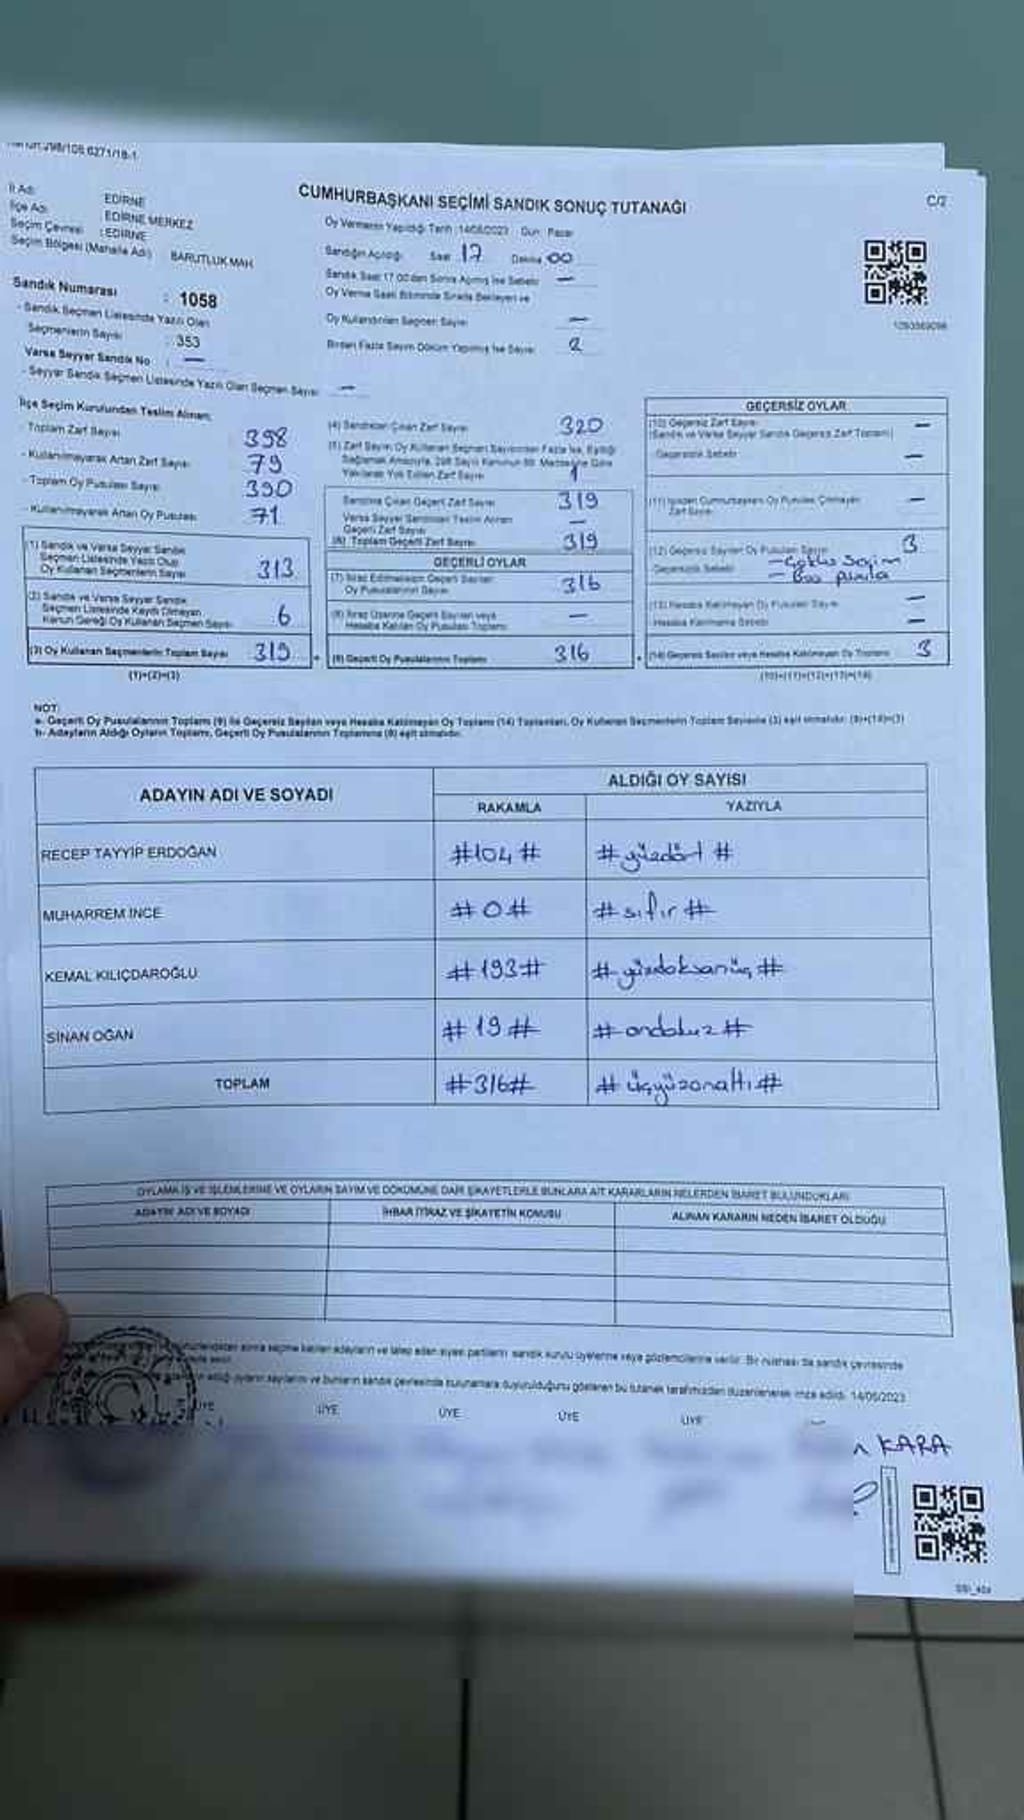 CUMHURBAŞKANI SEÇİMİ SANDIK SONUÇ TUTANAĞI
C/2
İl Adı: EDİRNE
İlçe Adı: EDİRNE MERKEZ
Seçim Çevresi : EDİRNE
Seçim Bölgesi (Mahalle Adı) BARUTLUK MAH.
Oy Vermenin Yapıldığı Tarih :14/05/2023 Gün: Pazar
Sandığın Açıldığı Saat 17 Dakika 00
Sandık Saat 17:00'den Sonra Açılmış İse Sebebi: —
Oy Verme Saati Bitiminde Sırada Bekleyen ve
Oy Kullandırılan Seçmen Sayısı —
Birden Fazla Sayım Döküm Yapılmış İse Sayısı 2
Sandık Numarası : 1058
- Sandık Seçmen Listesinde Yazılı Olan
Seçmenlerin Sayısı : 353
Varsa Seyyar Sandık No : —
- Seyyar Sandık Seçmen Listesinde Yazılı Olan Seçmen Sayısı —
İlçe Seçim Kurulundan Teslim Alınan:
- Toplam Zarf Sayısı 398
- Kullanılmayarak Artan Zarf Sayısı 79
- Toplam Oy Pusulası Sayısı 390
- Kullanılmayarak Artan Oy Pusulası 71
(1) Sandık ve Varsa Seyyar Sandık
Seçmen Listesinde Yazılı Olup
Oy Kullanan Seçmenlerin Sayısı 313
(2) Sandık ve Varsa Seyyar Sandık
Seçmen Listesinde Kayıtlı Olmayan
Kanun Gereği Oy Kullanan Seçmen Sayısı 6
(3) Oy Kullanan Seçmenlerin Toplam Sayısı 319
(1)+(2)=(3)
(4) Sandıktan Çıkan Zarf Sayısı 320
(5) Zarf Sayısı Oy Kullanan Seçmen Sayısından Fazla İse, Eşitliği
Sağlamak Amacıyla, 298 Sayılı Kanunun 98. Maddesine Göre
Yakılarak Yok Edilen Zarf Sayısı 1
Sandıkta Çıkan Geçerli Zarf Sayısı 319
Varsa Seyyar Sandıktan Teslim Alınan
Geçerli Zarf Sayısı —
(6) Toplam Geçerli Zarf Sayısı 319
GEÇERLİ OYLAR
(7) İtiraz Edilmeksizin Geçerli Sayılan
Oy Pusulalarının Sayısı 316
(8) İtiraz Üzerine Geçerli Sayılan veya
Hesaba Katılan Oy Pusulası Toplamı —
(9) Geçerli Oy Pusulalarının Toplamı 316
GEÇERSİZ OYLAR
(10) Geçersiz Zarf Sayısı —
(Sandık ve Varsa Seyyar Sandık Geçersiz Zarf Toplamı)
Geçersizlik Sebebi —
(11) İçinden Cumhurbaşkanı Oy Pusulası Çıkmayan
Zarf Sayısı —
(12) Geçersiz Sayılan Oy Pusulası Sayısı 3
Geçersizlik Sebebi
— Boş pusula
(13) Hesaba Katılmayan Oy Pusulası Sayısı —
Hesaba Katılmama Sebebi —
(14) Geçersiz Sayılan veya Hesaba Katılmayan Oy Toplamı 3
(10)+(11)+(12)+(13)=(14)
NOT:
a- Geçerli Oy Pusulalarının Toplamı (9) ile Geçersiz Sayılan veya Hesaba Katılmayan Oy Toplamı (14) Toplamları, Oy Kullanan Seçmenlerin Toplam Sayısına (3) eşit olmalıdır. (9)+(14)=(3)
b- Adayların Aldığı Oyların Toplamı, Geçerli Oy Pusulalarının Toplamına (9) eşit olmalıdır.
ADAYIN ADI VE SOYADI
ALDIĞI OY SAYISI
RAKAMLA YAZIYLA
RECEP TAYYİP ERDOĞAN #104# #yüzdört#
MUHARREM İNCE #0# #sıfır#
KEMAL KILIÇDAROĞLU #193# #yüzdoksanüç#
SİNAN OĞAN #19# #ondokuz#
TOPLAM #316# #üçyüzonaltı#
OYLAMA İŞ VE İŞLEMLERİNE VE OYLARIN SAYIM VE DÖKÜMÜNE DAİR ŞİKAYETLERLE BUNLARA AİT KARARLARIN NELERDEN İBARET BULUNDUKLARI
ADAYIN ADI VE SOYADI İHBAR İTİRAZ VE ŞİKAYETİN KONUSU ALINAN KARARIN NEDEN İBARET OLDUĞU
sonra seçime katılan adayların ve talep eden siyasi partilerin sandık kurulu üyelerine veya gözlemcilerine verilir. Bir nüshası da sandık çevresinde
aldığı oyların sayılarını ve bunların sandık çevresinde bulunanlara duyurulduğunu gösteren bu tutanak tarafımızdan düzenlenerek imza edildi. 14/05/2023
ÜYE ÜYE ÜYE ÜYE ÜYE
KARA